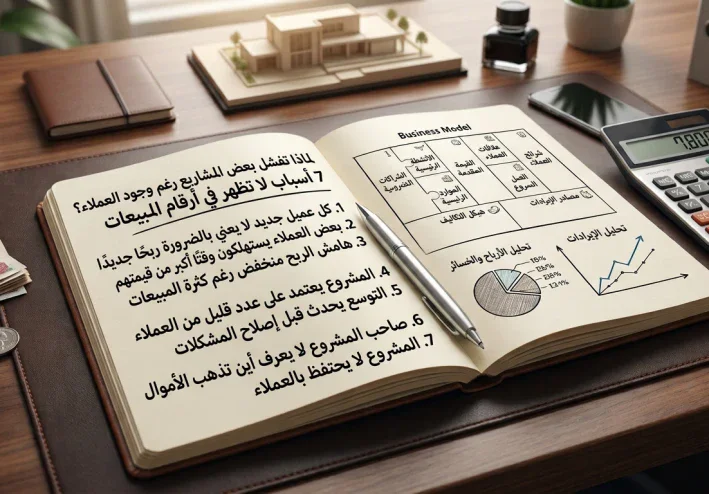 لماذا تفشل بعض المشاريع رغم وجود العملاء؟
7 أسباب لا تظهر في أرقام المبيعات
1. كل عميل جديد لا يعني بالضرورة ربحًا جديدًا
2. بعض العملاء يستهلكون وقتًا أكبر من قيمتهم
3. هامش الربح منخفض رغم كثرة المبيعات
4. المشروع يعتمد على عدد قليل من العملاء
5. التوسع يحدث قبل إصلاح المشكلات
6. صاحب المشروع لا يعرف أين تذهب الأموال
7. المشروع لا يحتفظ بالعملاء
Business Model
شرائح
العملاء
علاقات
العملاء
القيمة
المقدمة
الأنشطة
الرئيسية
الموارد
الرئيسية
مصادر الإيرادات
هيكل التكاليف
تحليل الإيرادات
تحليل الأرباح والخسائر